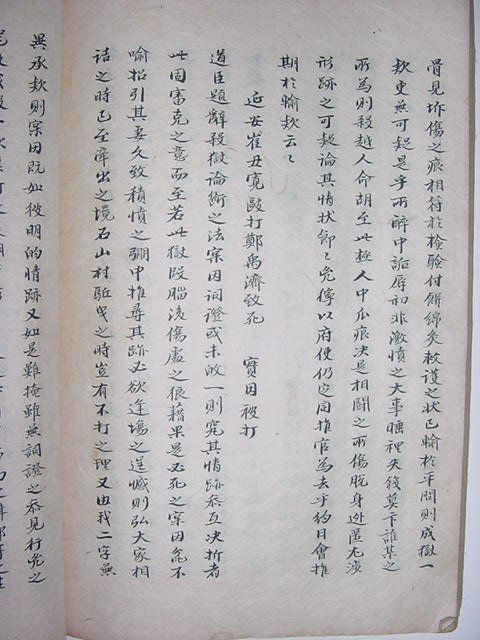 骨見折傷之痕相符於檢驗付餠綿灸救護之狀已輸於平問則成獄一
款更無可疑是乎所醉中詬辱初非激憤之大事睡裡失錢莫卞誰某之
所為則殺越人命胡至此極人中瓜痕決是相鬪之所傷脫身逃匿尤涉
形跡之可疑論其情狀節節兇獰以府使仍定同推官為去乎約日會推
期於輸款云云
延安崔丑寬毆打鄭禹濟致死 實因被打
道臣題辭殺獄論斷之法案因詞證或未的一則究其情跡參互決折者
此固審克之意而至若此獄段腦後傷處之狼藉果是必死之案因兺不
喩招引其妻久致積憤之弸中推尋其跡必欲逢場之逞憾則弘大家相
詰之時已至座出之境石山村駈曳之時豈有不打之理又由我二字無
異承款則案因既如彼明的情跡又如是難掩雖無詞證之參見行兇之